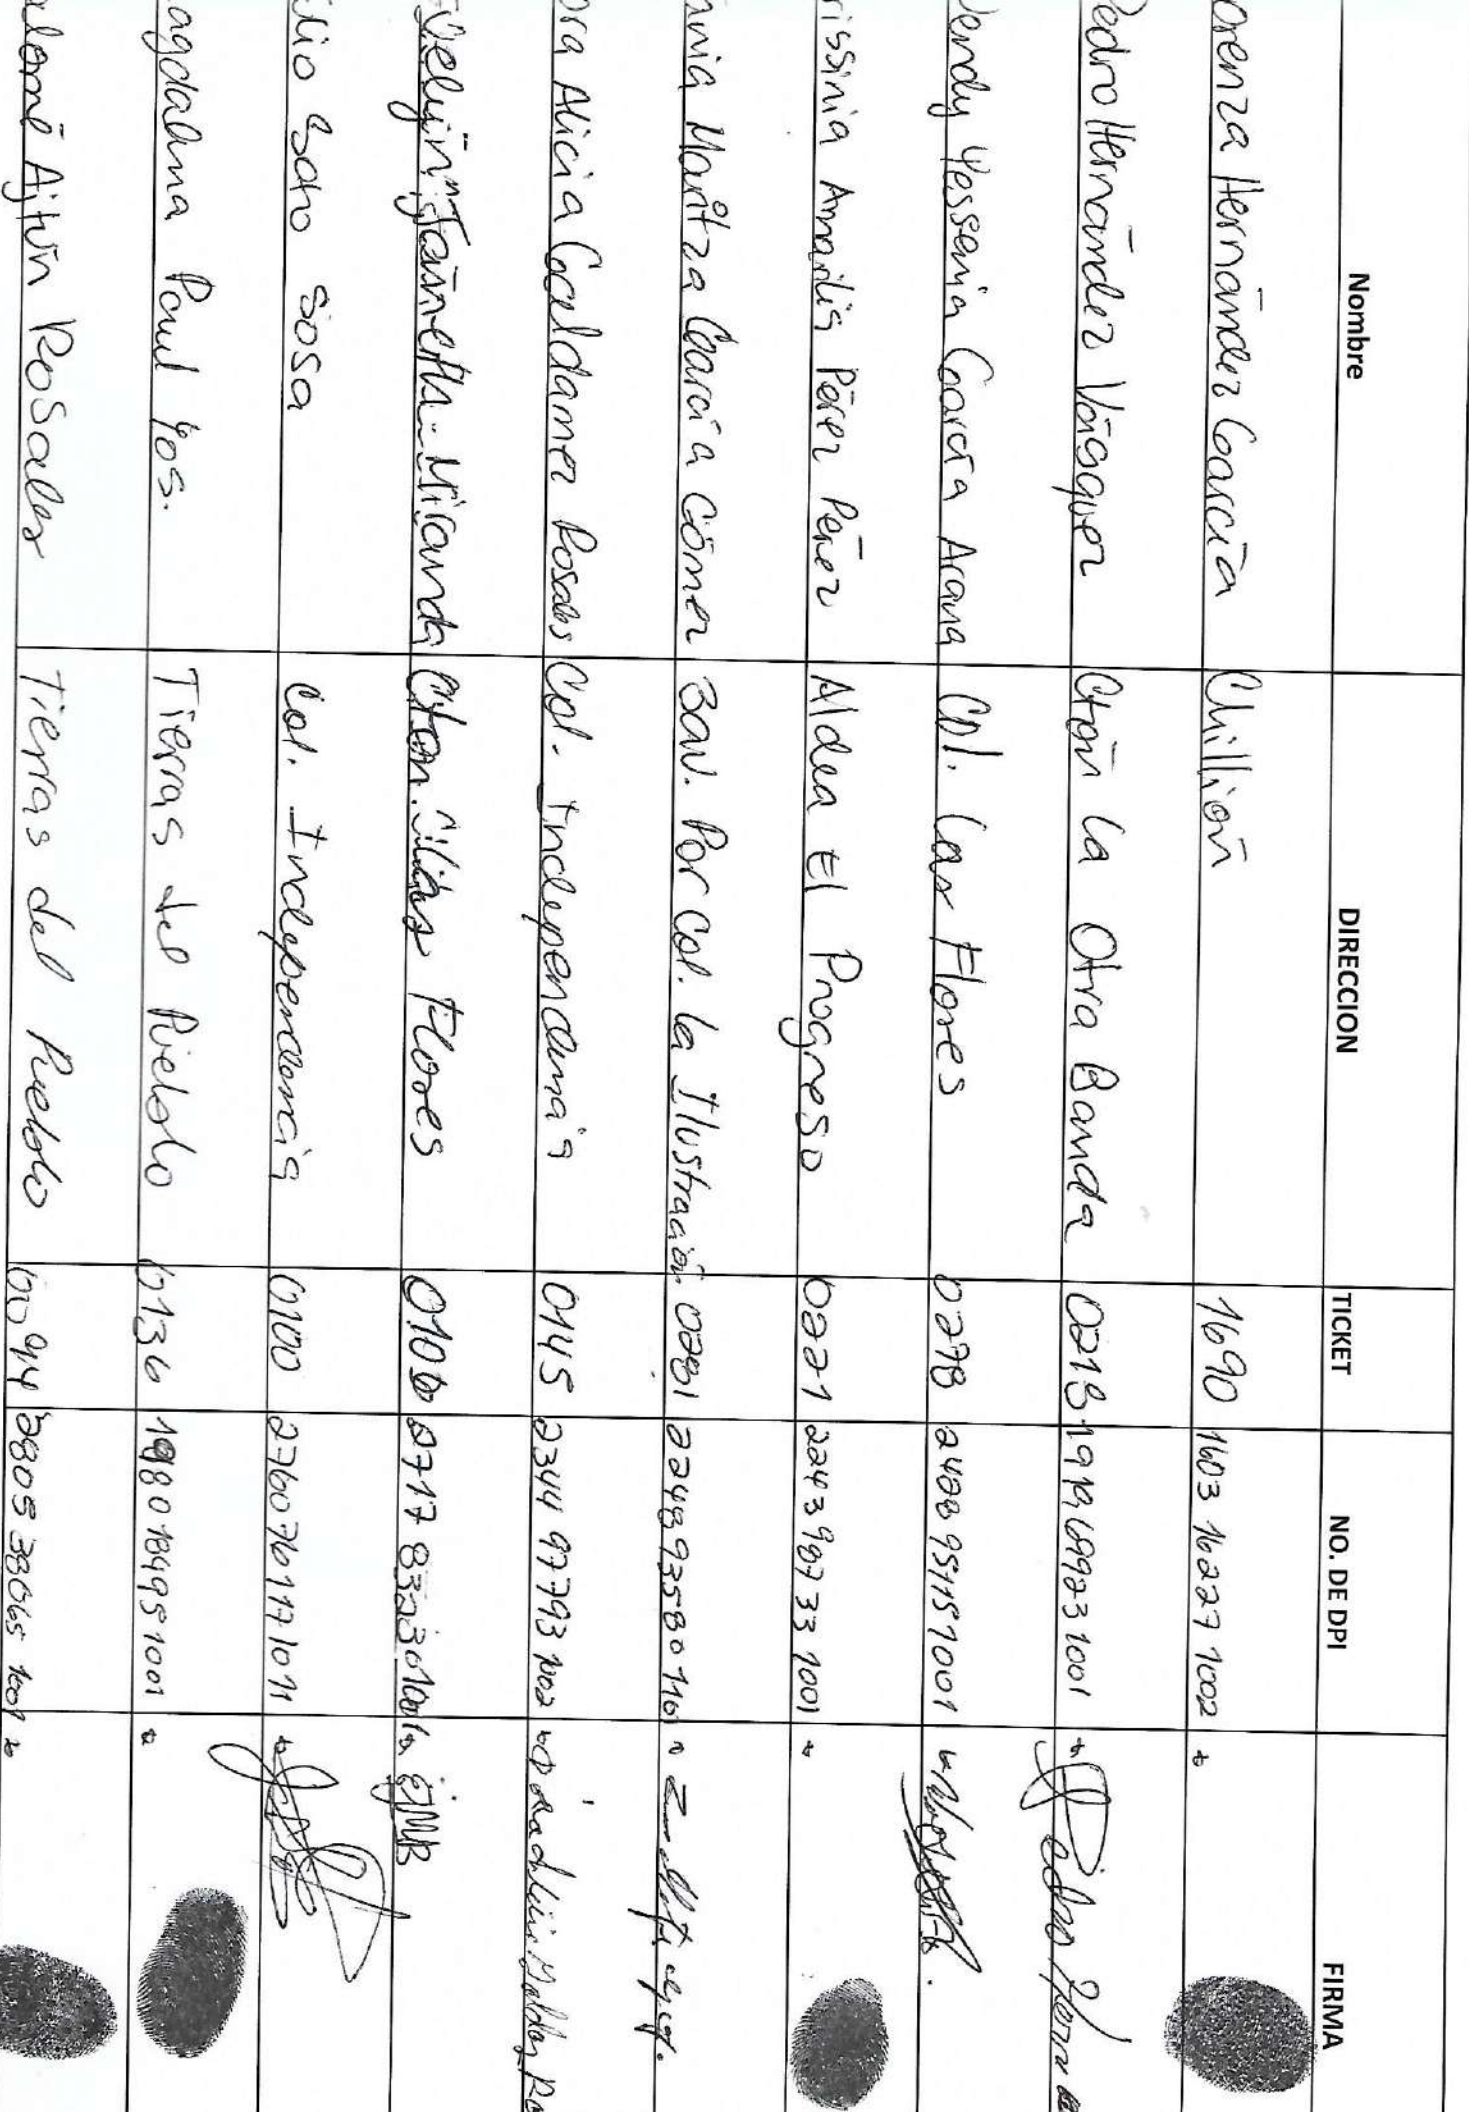 Nombre DIRECCION TICKET NO. DE DPI FIRMA
orenza Hernández García Chillión 1690 1603 16227 1002
Pedro Hernández Vásquez Ctón la Otra Banda 0218 1919 69923 1001
endy Yessenia García Arana Col. Las Flores 0278 2428 95115 1001
rissinia Amarilis Pérez Pérez Aldea El Progreso 0221 2243 98733 1001
Maritza García Gómez 3av. Por Col. la Ilustración 0281 2248 93580 1101
ora Alicia Galdamez Rosales Col. Independencia 0145 2344 97793 1002
Miranda Cton. Flores 2717 JMB
lio Soto Sosa Col. Independencia 0100 27607 6117 1011
agdalena Yos. Tierras del Pueblo 0136 1980 18495 1001
alomé Ajtún Rosales Tierras del Pueblo 2805 38065 1001